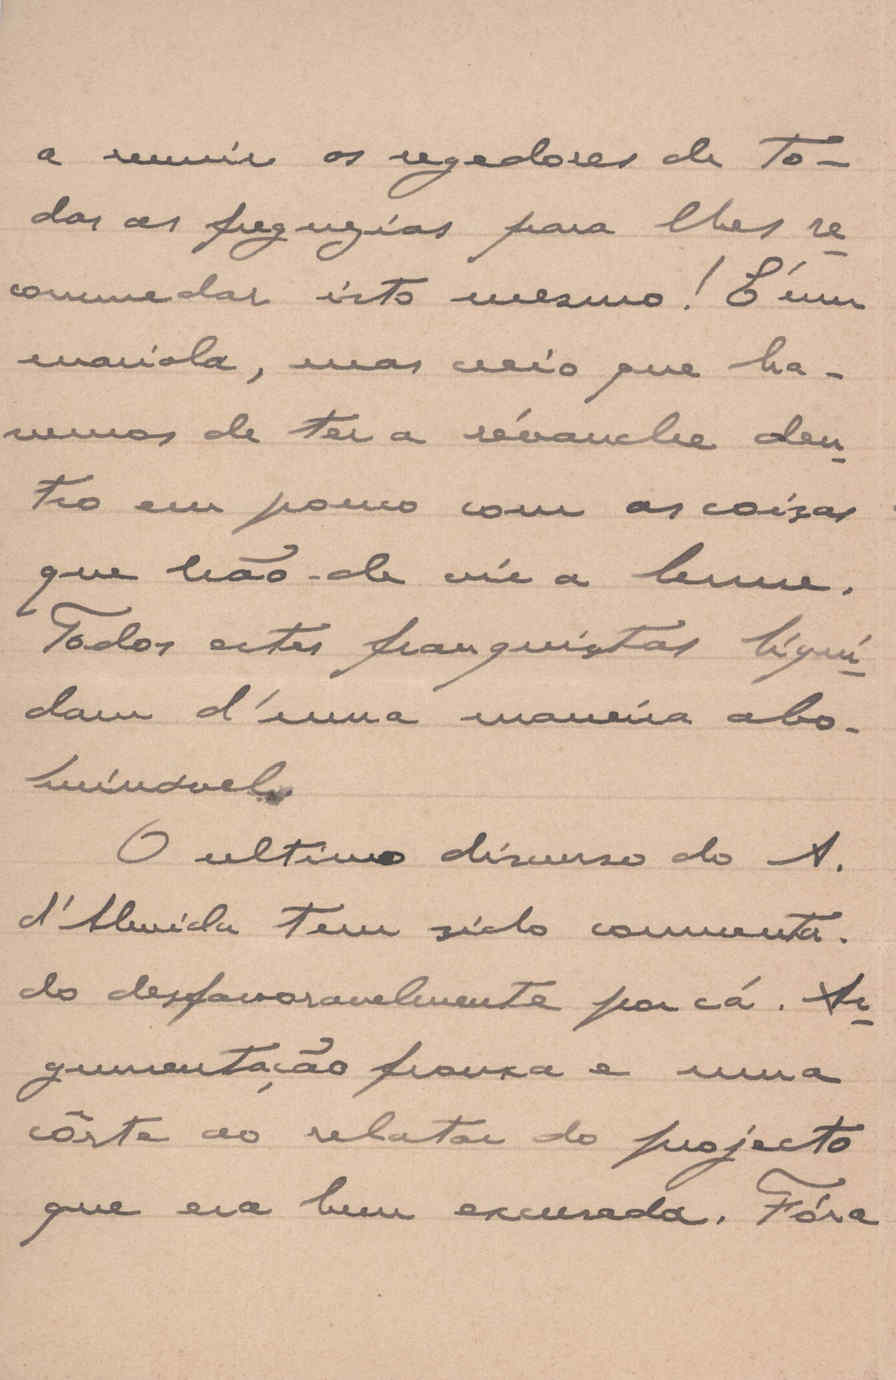 a reunir os regedores de to-
das as freguezias para lhes re-
commedar isto mesmo! É um
mariola, mas creio que ha-
vemos de ter a révanche den-
tro em pouco com as coisas
que hão-de vir a lume.
Todos estes franquistas liqui-
dam d'uma maneira abo-
minavel.
O ultimo discurso do A.
d'Almeida tem sido commenta-
do desfavoravelmente por cá. Ar-
gumentação frouxa e uma
côrte ao relator do projecto
que era bem excusada. Fóra